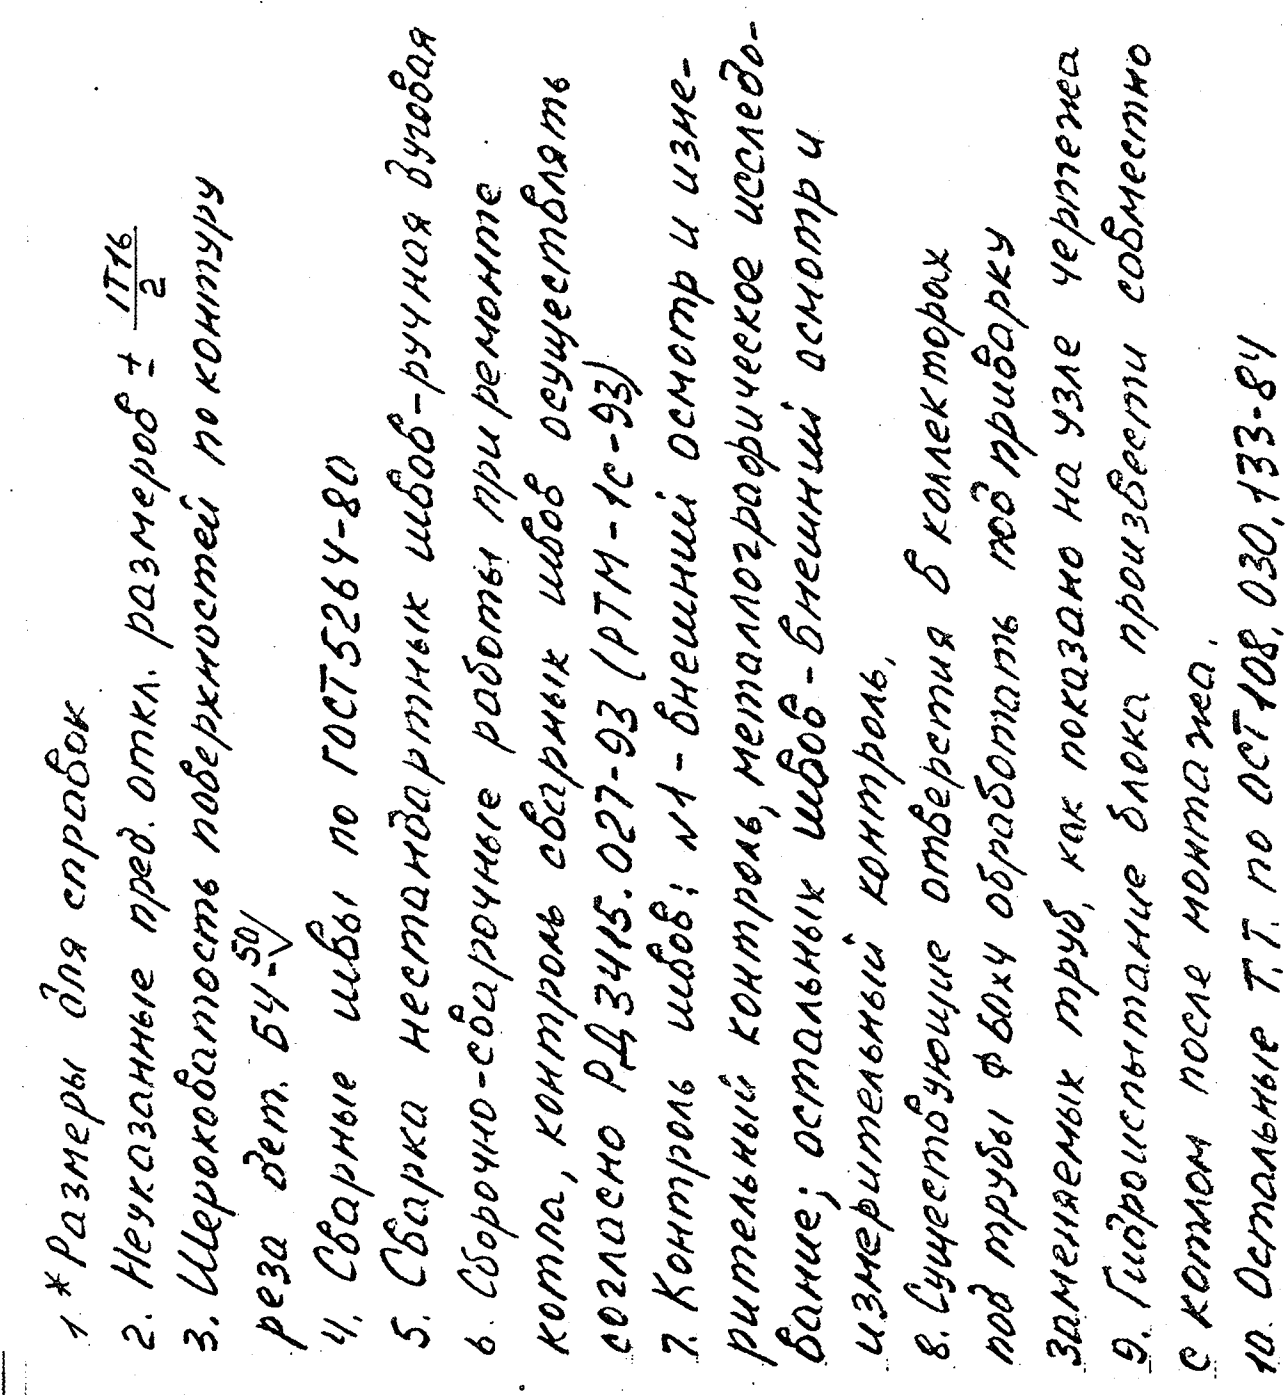 1.* Размеры для справок
2. Неуказанные пред. откл. размеров ± IT16/2
3. Шероховатость поверхностей по контуру
реза дет. Б4 - 50√
4. Сварные швы по ГОСТ 5264-80
5. Сварка нестандартных швов - ручная дуговая
6. Сборочно-сварочные работы при ремонте
котла, контроль сварных швов осуществлять
согласно РД 3415.027-93 (РТМ-1с-93)
7. Контроль швов: N1 - внешний осмотр и изме-
рительный контроль, металлографическое исследо-
вание; остальных швов - внешний осмотр и
измерительный контроль.
8. Существующие отверстия в коллекторах
под трубы Ф60х4 обработать под приварку
заменяемых труб, как показано на узле чертежа
9. Гидроиспытание блока произвести совместно
с котлом после монтажа.
10. Остальные Т.Т. по ОСТ 108.030.133-84